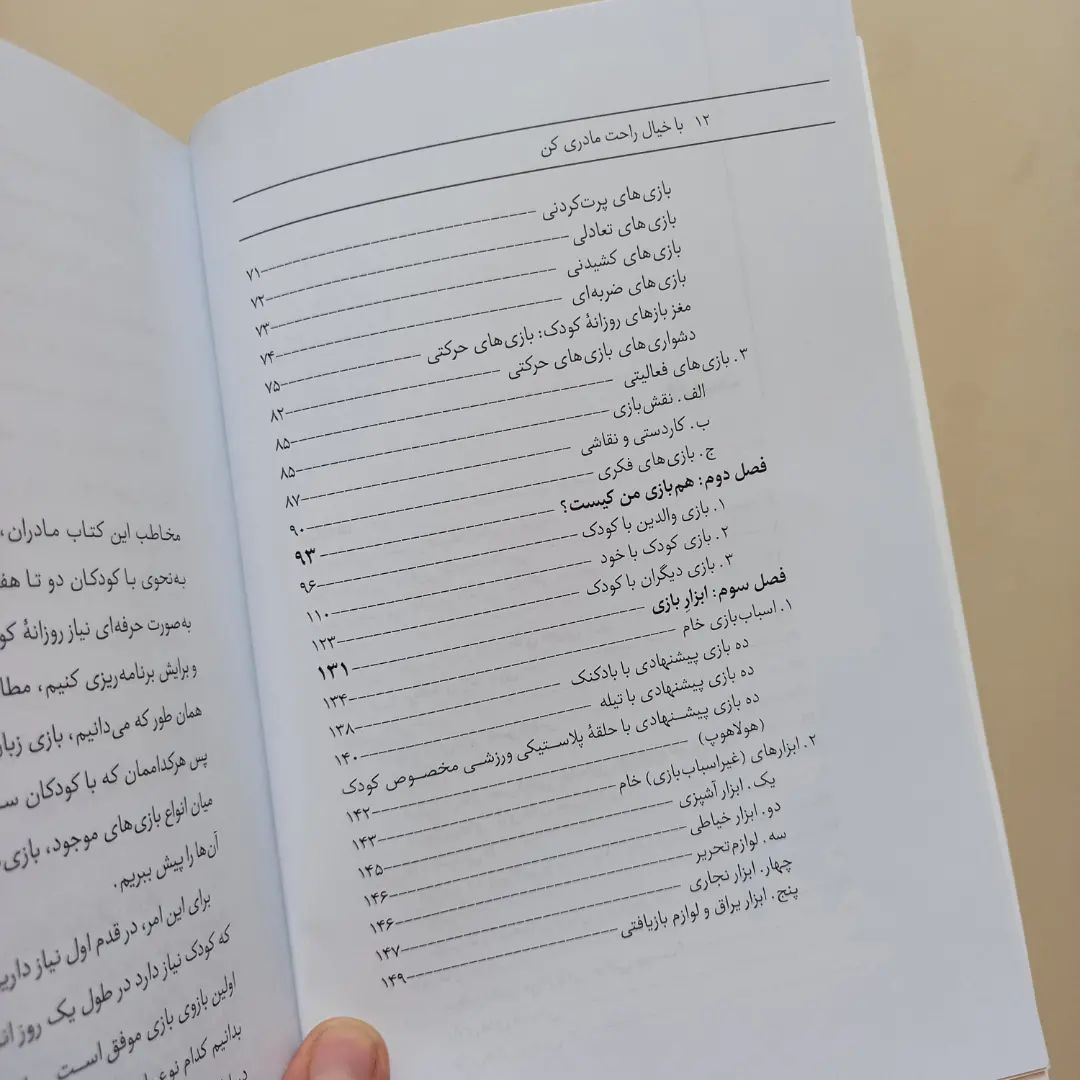 ۱۲ با خیال راحت مادری کن
بازی‌های پرت‌کردنی ۷۱
بازی‌های تعادلی ۷۲
بازی‌های کشیدنی ۷۳
بازی‌های ضربه‌ای ۷۴
مغز بازهای روزانهٔ کودک: بازی‌های حرکتی ۷۵
دشواری‌های بازی‌های حرکتی ۸۲
۳. بازی‌های فعالیتی ۸۵
الف. نقش‌بازی ۸۵
ب. کاردستی و نقاشی ۸۷
ج. بازی‌های فکری ۹۰
فصل دوم: هم‌بازی من کیست؟ ۹۳
۱. بازی والدین با کودک ۹۶
۲. بازی کودک با خود ۱۱۰
۳. بازی دیگران با کودک ۱۲۳
فصل سوم: ابزارِ بازی ۱۳۱
۱. اسباب‌بازی خام ۱۳۴
ده بازی پیشنهادی با بادکنک ۱۳۸
ده بازی پیشنهادی با تیله ۱۴۰
ده بازی پیشنهادی با حلقهٔ پلاستیکی ورزشی مخصوص کودک
(هولاهوپ) ۱۴۲
۲. ابزارهای (غیراسباب‌بازی) خام ۱۴۳
یک. ابزار آشپزی ۱۴۵
دو. ابزار خیاطی ۱۴۶
سه. لوازم‌تحریر ۱۴۶
چهار. ابزار نجاری ۱۴۷
پنج. ابزار یراق و لوازم بازیافتی ۱۴۹
مخاطب این کتاب مادران،
به‌نحوی با کودکان دو تا
به‌صورت حرفه‌ای نیاز روزانهٔ
و برایش برنامه‌ریزی کنیم،
همان طور که می‌دانیم، بازی
پس هرکداممان که با کودکان
میان انواع بازی‌های موجود،
آن‌ها را پیش ببریم.
برای این امر، در قدم اول نیاز
که کودک نیاز دارد در طول یک روز
اولین بازوی بازی موفق است
بدانیم کدام نوع